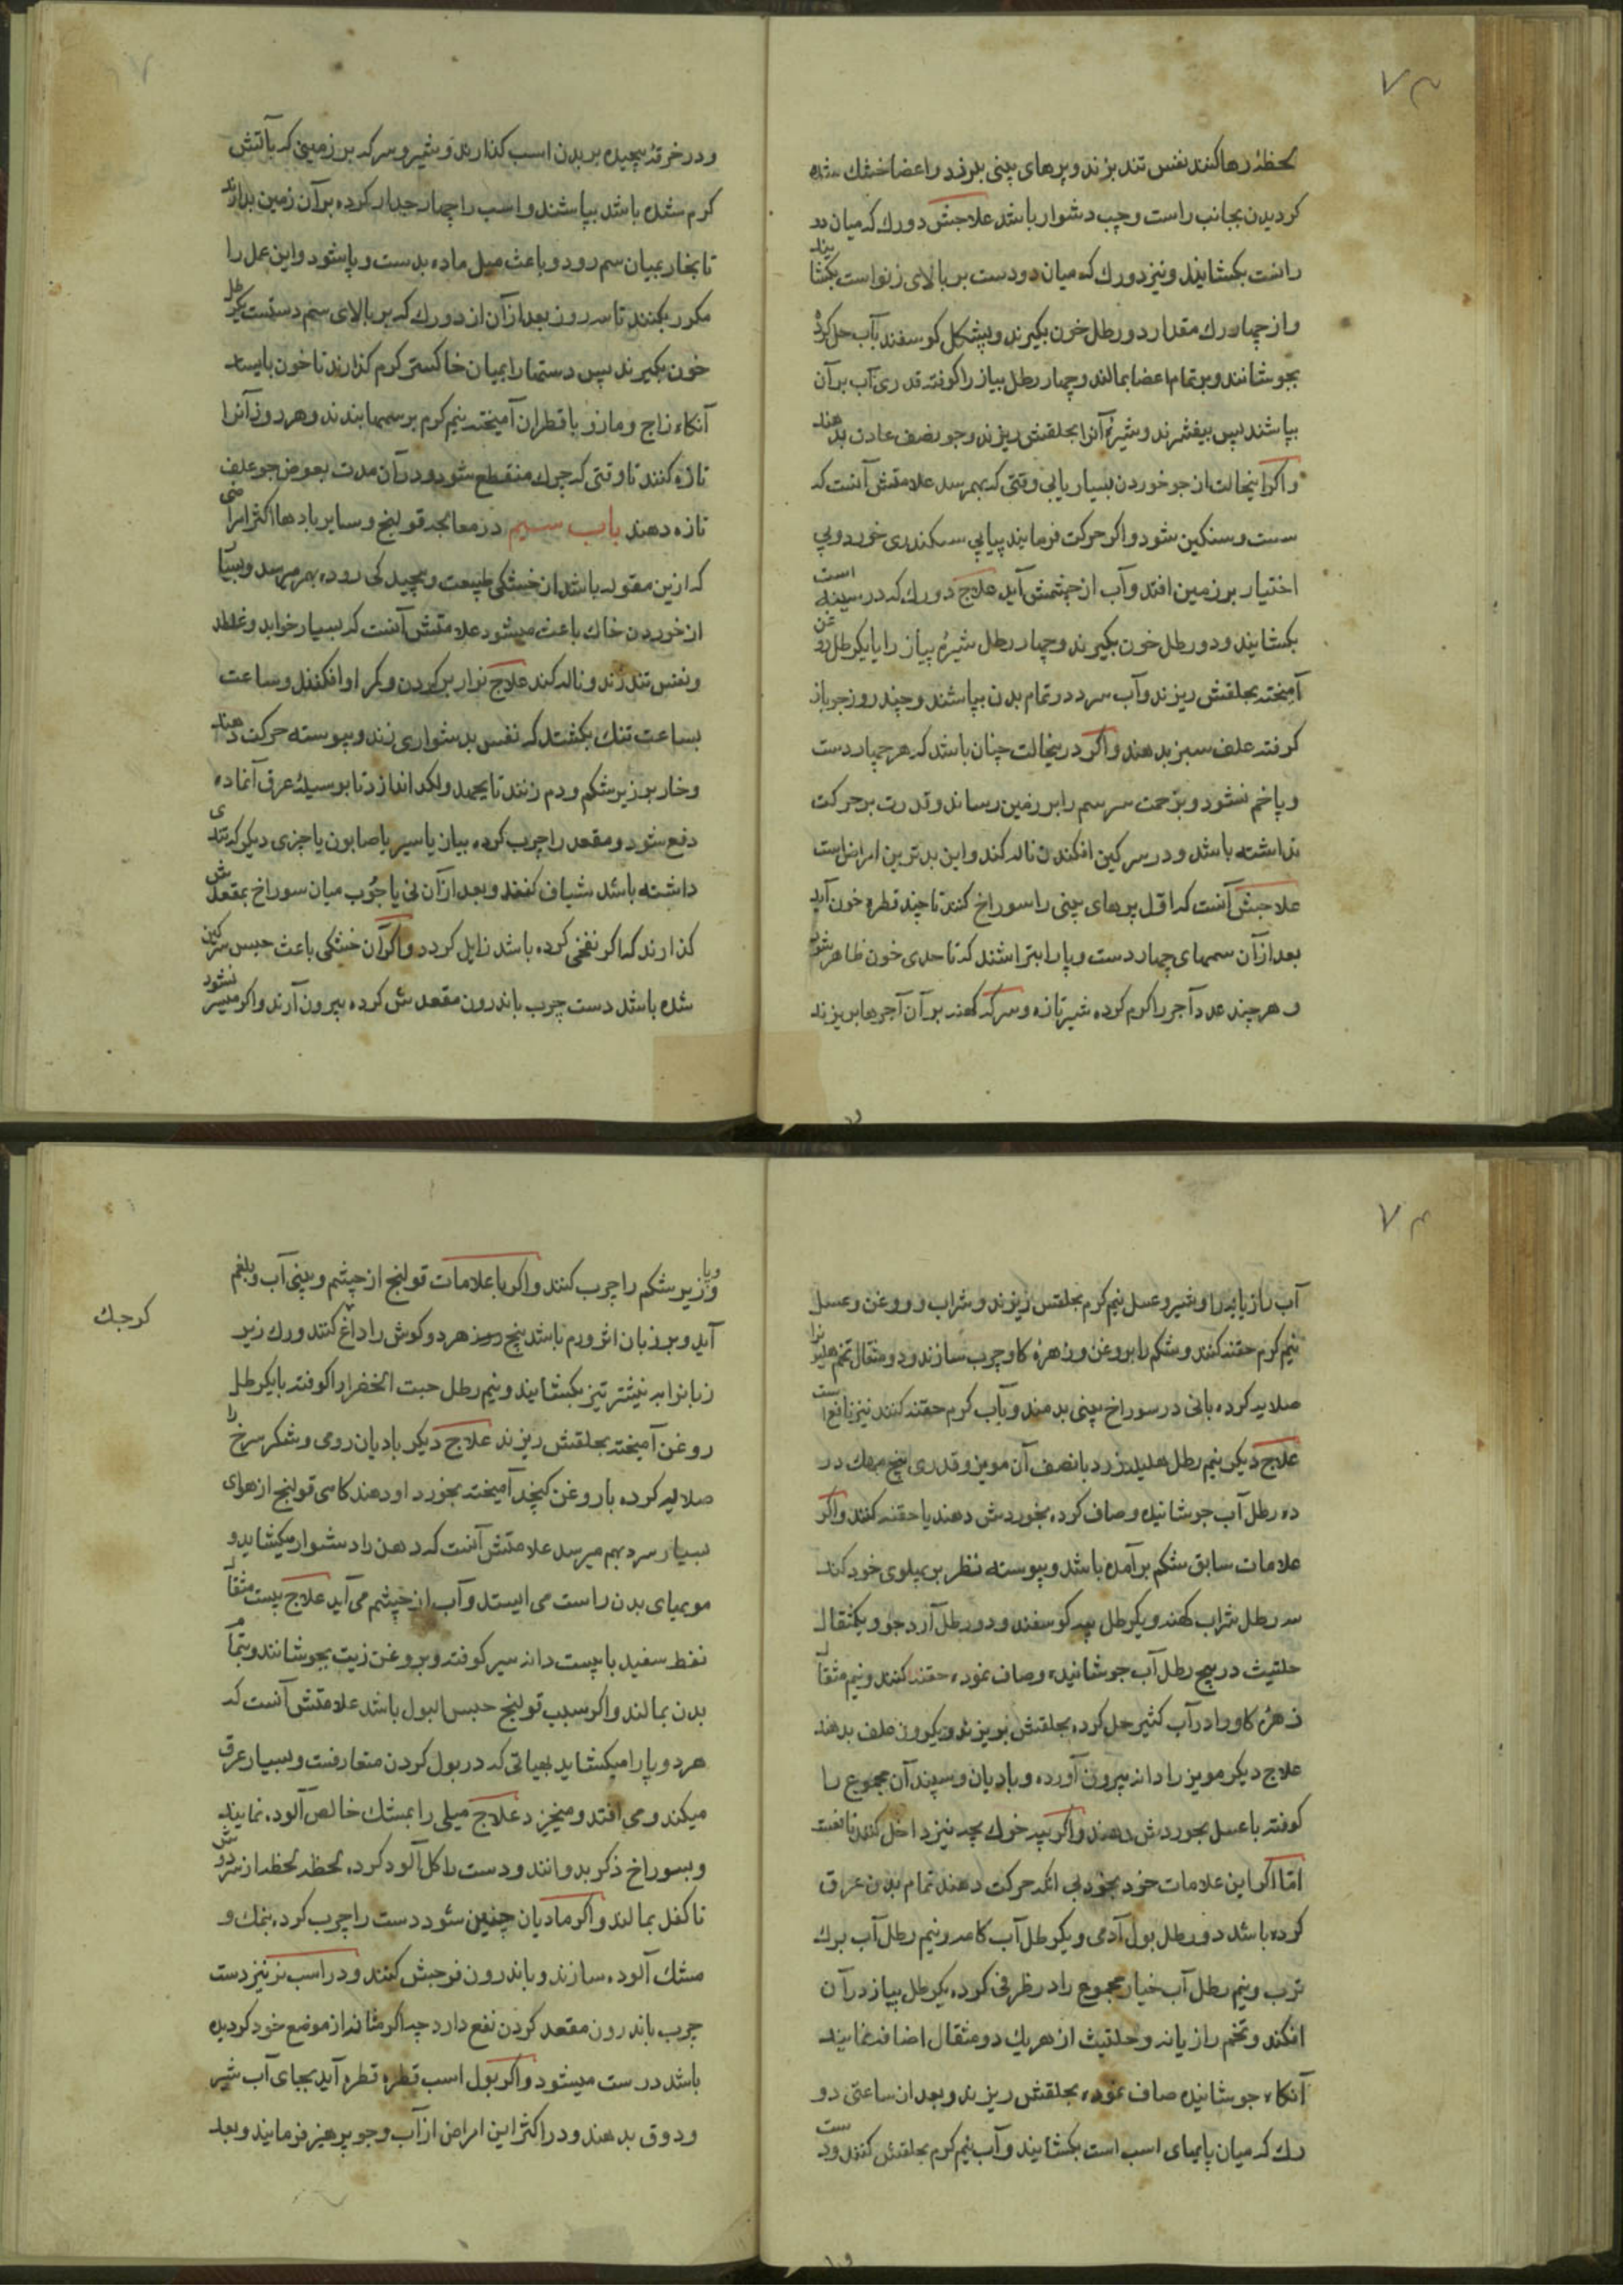 ۷۳
لحظهٔ رها کنند نفس تند بزند و پرهای بینی بلرزد و اعضا خشك شده
کردیدن بجانب راست و چپ دشوار باشد علاجش دو رك که میان دو
راست بکشایند و نیز دو رك که میان دو دست بر بالای زنو است بکشا
یند
و از چهار رك مقدار دو رطل خون بکیرند و پشکل کوسفند بآب حل کرده
بجوشانند و بر تمام اعضا بمالند و چهار رطل پیاز را کوفته قدری آب بر آن
بپاشند پس بیفشرند و شیرهٔ آنرا بحلقش ریزند و جو نصف عادت بدهند
و اکر اینحالت از جو خوردن بسیار یابی وقتی که بهم رسد علامتش آنست که
سست و سنکین شود و اکر حرکت فرمایند پیاپی سکندری خورد و بی
اختیار بر زمین افتد و آب از چشمش آید علاج دو رك که در سینه است
بکشایند و دو رطل خون بکیرند و چهار رطل شیرهٔ پیاز را با یکرطل روغن
آمیخته بحلقش ریزند و آب سرد در تمام بدن بپاشند و چند روز جو باز
کرفته علف سبز بدهند و اکر درینحالت چنان باشد که هر چهار دست
و پا خم نشود و بزحمت سر سم را بر زمین رساند و قدرت بر حرکت
نداشته باشد و در سرکین افکندن ناله کند و این بدترین امراض است
علاجش آنست که اوّل پرهای بینی را سوراخ کنند تا چند قطره خون آید
بعد از آن سمهای چهار دست و پا را بتراشند که تا حدی خون ظاهر شود
و هر چند عدد آجر را کرم کرده شیر تازه و سرکهٔ کهنه بر آن آجرها بریزند
و در خرقهٔ پیچیده بر بدن اسب کذارند و شیر و سرکه بر زمینی که بآتش
کرم شده باشد بپاشند و اسب را چهار جدار کرده بر آن زمین بدارند
تا بخار بمیان سم رود و باعث میل ماده بدست و پا شود و این عمل را
مکرر بکنند تا سه روز بعد از آن از دو رك که بر بالای سم دستست یکرطل
خون بکیرند پس دستها را بمیان خاکستر کرم کذارند تا خون بایستد
آنکاه زاج و مازو با قطران آمیخته نیم کرم بر سمها بندند و هر روز آنرا
تازه کنند تا وقتی که چرك منقطع شود و در آن مدت بعوض جو علف
تازه دهند باب سیم در معالجه قولنج و سایر بادها اکثر امراضی
که ازین مقوله باشد از خشکی طبیعت و پیچیدکی روده بهم میرسد و بسیا
از خوردن خاك باعث میشود علامتش آنست که بسیار خوابد و غلطد
و نفس تند زند و ناله کند علاج نوار بر کردن و کمر او افکنند و ساعت
بساعت تنك بکشند که نفس بدشواری زند و پیوسته حرکت دهند
و خار بر زیر شکم و دم زنند تا بجهد و لکد اندازد تا بوسیلهٔ عرق آنماده
دفع شود و مقعد را چرب کرده بیان یا سیر یا صابون یا چیزی دیکر که تندی
داشته باشد شیاف کنند و بعد از آن نی یا چوب میان سوراخ بمقعدش
کذارند که اکر نفخی کرده باشد زایل کردد و اکر آن خشکی باعث حبس سرکین
شده باشد دست چرب باندرون مقعدش کرده بیرون آرند و اکر میسر نشود
۷۴
آب رازیانه را و شیر و عسل نیم کرم بحلقش ریزند و شراب و روغن و عسل
نیم کرم حقنه کنند و شکم را بروغن و زهرهٔ کاو چرب سازند و دو مثقال تخم
صلایه کرده بانی در سوراخ بینی بدمند و بآب کرم حقنه کنند نیز نافع است
علاج دیکر نیم رطل هلیله زرد با نصف آن مویز و قدری بیخ مهك در
ده رطل آب جوشانیده و صاف کرده بخوردش دهند یا حقنه کنند و اکر
علامات سابق شکم بر آمده باشد و پیوسته نظر بر پهلوی خود کند
سه رطل شراب کهنه و یکرطل پیه کوسفند و دو رطل آرد جو و یکمثقال
حلتیث در پنج رطل آب جوشانیده و صاف نموده حقنه کنند و نیم مثقال
زهرهٔ کاو را در آب کثیر حل کرده بحلقش بریزند و یکروز علف بدهند
علاج دیکر مویز را دانه بیرون آورده و بادیان و سپند آن مجموع را
کوفته با عسل بخوردش دهند و اکر پیه خوك بچه نیز داخل کنند نافعست
امّا اکر این علامات خود بخود بی آنکه حرکت دهند تمام بدن عرق
کرده باشد دو رطل بول آدمی و یکرطل آب کامه و نیم رطل آب برك
ترب و نیم رطل آب خیار مجموع را در ظرفی کرده یکرطل پیاز در آن
افکند و تخم رازیانه و حلتیث از هر یك دو مثقال اضافه نمایند
آنکاه جوشانیده صاف نموده بحلقش ریزند و بعد از ساعتی دو
رك که میان پایهای اسب است بکشایند و آب نیم کرم بحلقش کنند و دست
و پا
و زیر شکم را چرب کنند و اکر با علامات قولنج از چشم و بینی آب و بلغم
آید و بر زبان اثر ورم باشد پنج روز هر دو کوش را داغ کنند و رك زیر
کوجك
زبانرا به نیشتر تیز بکشایند و نیم رطل حبت الخضرا را کوفته با یکرطل
روغن آمیخته بحلقش ریزند علاج دیکر بادیان رومی و شکر سرخ را
صلایه کرده با روغن کنجد آمیخته بخورد او دهند کاهی قولنج از هوای
بسیار سرد بهم میرسد علامتش آنست که دهن را دشوار میکشاید و
مویهای بدن راست می ایستد و آب از چشم می آید علاج بیست مثقال
نفط سفید با بیست دانه سیر کوفته و بروغن زیت بجوشانند و بتمام
بدن بمالند و اکر سبب قولنج حبس البول باشد علامتش آنست که
هر دو پا را میکشاید بهیاتی که در بول کردن متعارفست و بسیار عرق
میکند و می افتد و میخیزد علاج میلی را بمشك خالص آلوده نمایند
و بسوراخ ذکر بدوانند و دست را کل آلود کرده لحظه لحظه از
تا کفل بمالند و اکر مادیان چنین شود دست را چرب کرده بنمك و
مشك آلوده سازند و باندرون فرجش کنند و در اسب نر نیز دست
چرب باندرون مقعد کردن نفع دارد چه اکر مثانه از موضع خود کردیده
باشد درست میشود و اکر بول اسب قطره قطره آید بجای آب شیر
و دوق بدهند و در اکثر این امراض از آب و جو پرهیز فرمایند و بعد